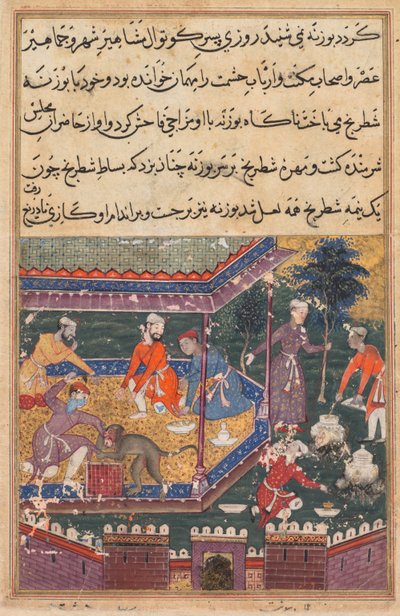 کردد بوزنه نمی شنید روزی پسر کوتوال مشاهیر شهر و جماهیر
عصر و اصحاب مکنت و ارباب حشمت را مهمان خوانده بود و خود با بوزنه
شطرنج می باخت ناکاه بوزنه با او مزاجی فاحش کرد و او از حاضران مجلس
شرمنده کشت و مهره شطرنج بر سر بوزنه چنان بزد که بساط شطرنج چون
یک نیمه شطرنج همه لعل شد بوزنه نیز برجست و بر اندام او کازی رفت